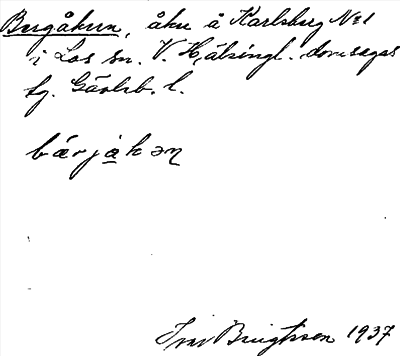 Bergåkern, åker å Karlsberg No 1
i Los sn. V. Hälsingl. domsagas
tg. Gävleb. l.
bærjakən
Ivar Bengtsson 1937